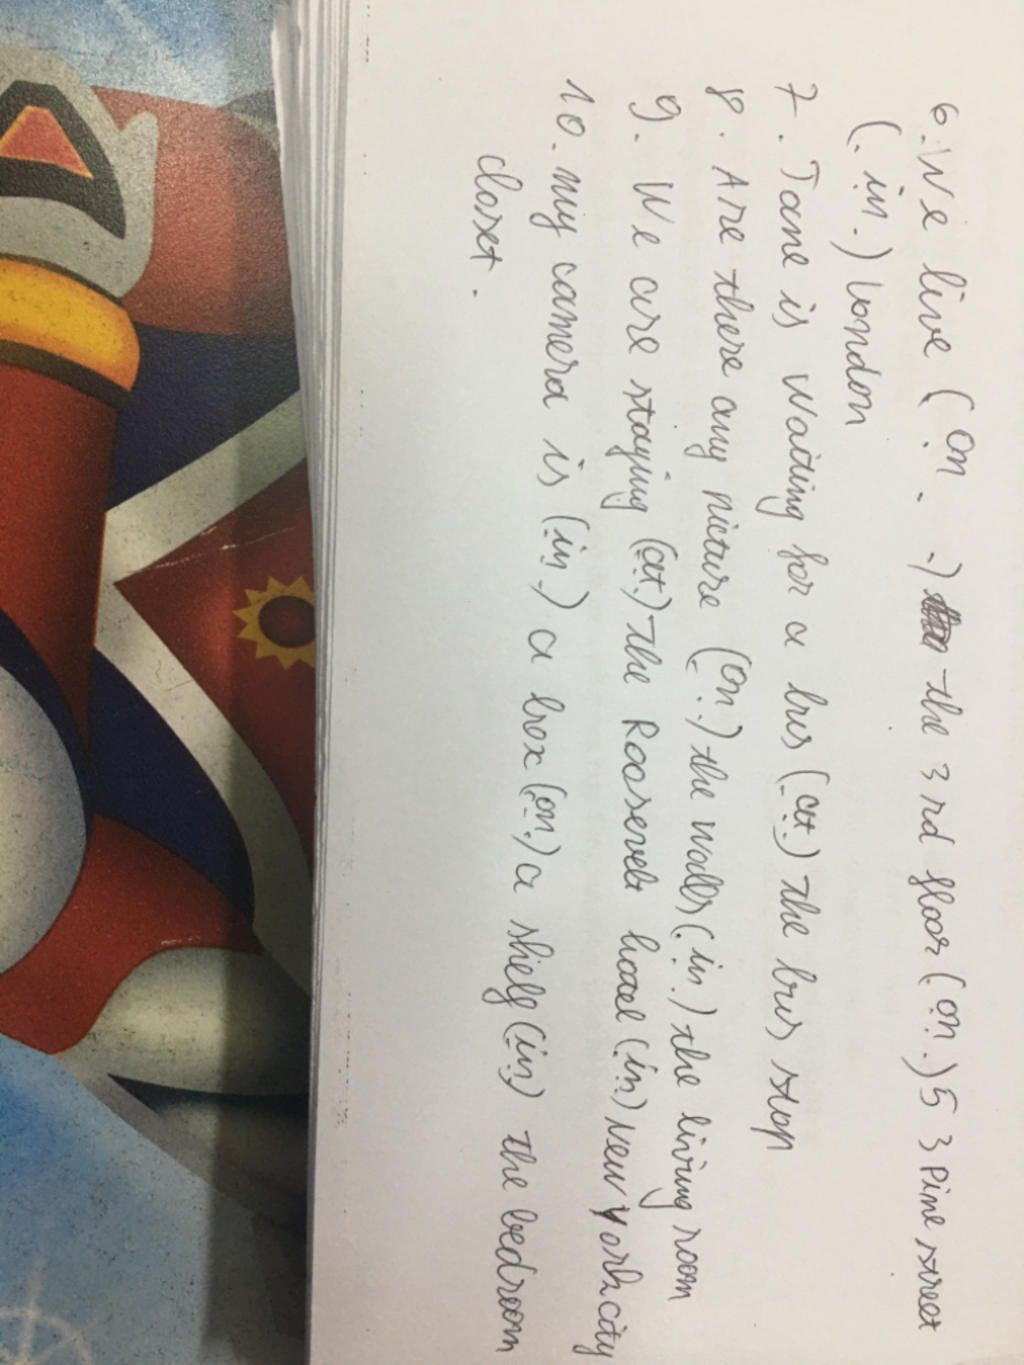 6. We live (on. .) the 3rd floor (on.) 53 Pine street
(. in .) london
7. Jane is waiting for a bus (at.) the bus stop
8. Are there any picture (on.) the walls (in.) the living room
9. We are staying (at.) the Roosevelt hotel (in) New York city
10. my camera is (in.) a box (on.) a shelf (in) the bedroom
closet.